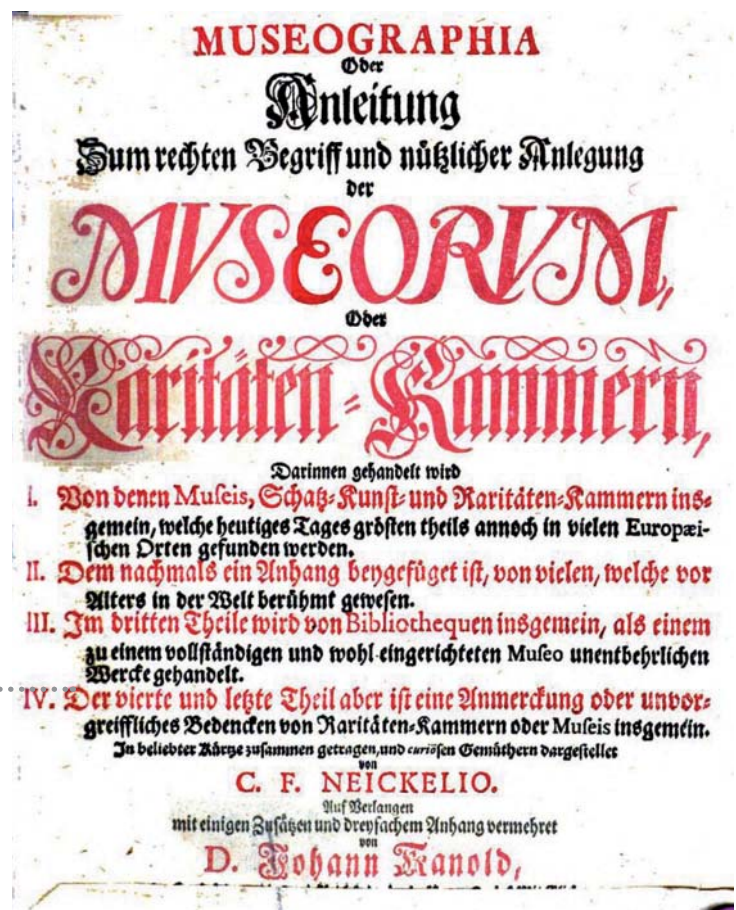 MUSEOGRAPHIA
Oder
Anleitung
Zum rechten Begriff und nützlicher Anlegung
der
MVSEORVM,
Oder
Raritäten-Kammern,
Darinnen gehandelt wird
I. Von denen Museis, Schatz-Kunst- und Raritäten-Kammern ins-
gemein, welche heutiges Tages grösten theils annoch in vielen Europæi-
schen Orten gefunden werden.
II. Dem nachmals ein Anhang beygefüget ist, von vielen, welche vor
Alters in der Welt berühmt gewesen.
III. Im dritten Theile wird von Bibliothequen insgemein, als einem
zu einem vollständigen und wohl eingerichteten Museo unentbehrlichen
Wercke gehandelt.
IV. Der vierte und letzte Theil aber ist eine Anmerckung oder unvor-
greiffliches Bedencken von Raritäten-Kammern oder Museis insgemein.
In beliebter Kürtze zusammen getragen, und curiösen Gemüthern dargestellet
von
C. F. NEICKELIO.
Auf Verlangen
mit einigen Zusätzen und dreyfachem Anhang vermehret
von
D. Johann Kanold,